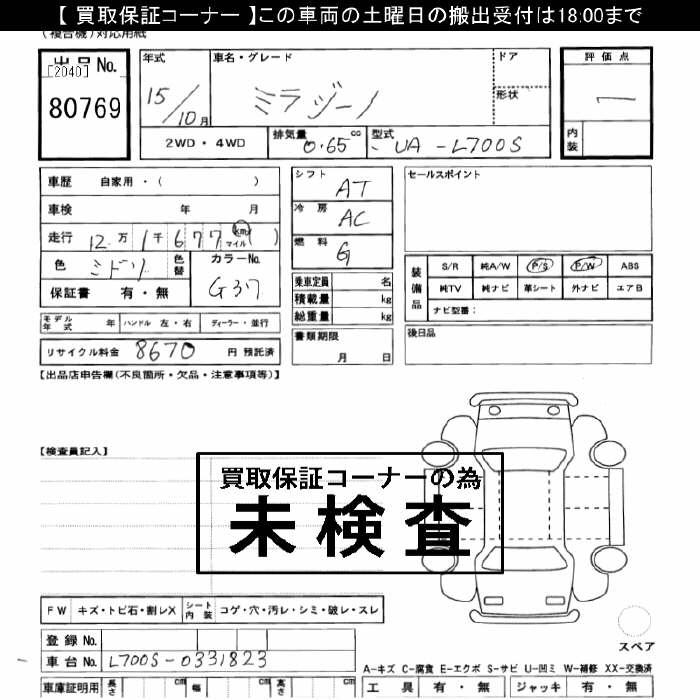 【 買取保証コーナー 】この車両の土曜日の搬出受付は18:00まで
(複合機)対応用紙
出品No.
[2040]
80769
年式
15/10月
車名・グレード
ミラジーノ
ドア
形状
評価点
―
内装
2WD・4WD
排気量 0.65 cc
型式 UA-L700S
車歴 自家用・( )
車検 年 月
走行 12万1千677 km マイル ( )
色 ミドリ 色替
カラーNo. G37
保証書 有・無
シフト AT
冷房 AC
燃料 G
乗車定員 名
積載量 kg
総重量 kg
書類期限
月 日
セールスポイント
装備品
S/R 純A/W P/S P/W ABS
純TV 純ナビ 革シート 外ナビ エアB
ナビ型番:
後日品
モデル年式 年 ハンドル 左・右 ディーラー・並行
リサイクル料金 8670 円 預託済
【出品店申告欄(不良箇所・欠品・注意事項等)】
【検査員記入】
買取保証コーナーの為
未検査
FW キズ・トビ石・割レX シート内装 コゲ・穴・汚レ・シミ・破レ・スレ
スペア
登録No.
車台No. L700S-0331823
A-キズ C-腐食 E-エクボ S-サビ U-凹ミ W-補修 XX-交換済
車庫証明用 長さ cm 幅 cm 高さ cm
工具 有・無 ジャッキ 有・無